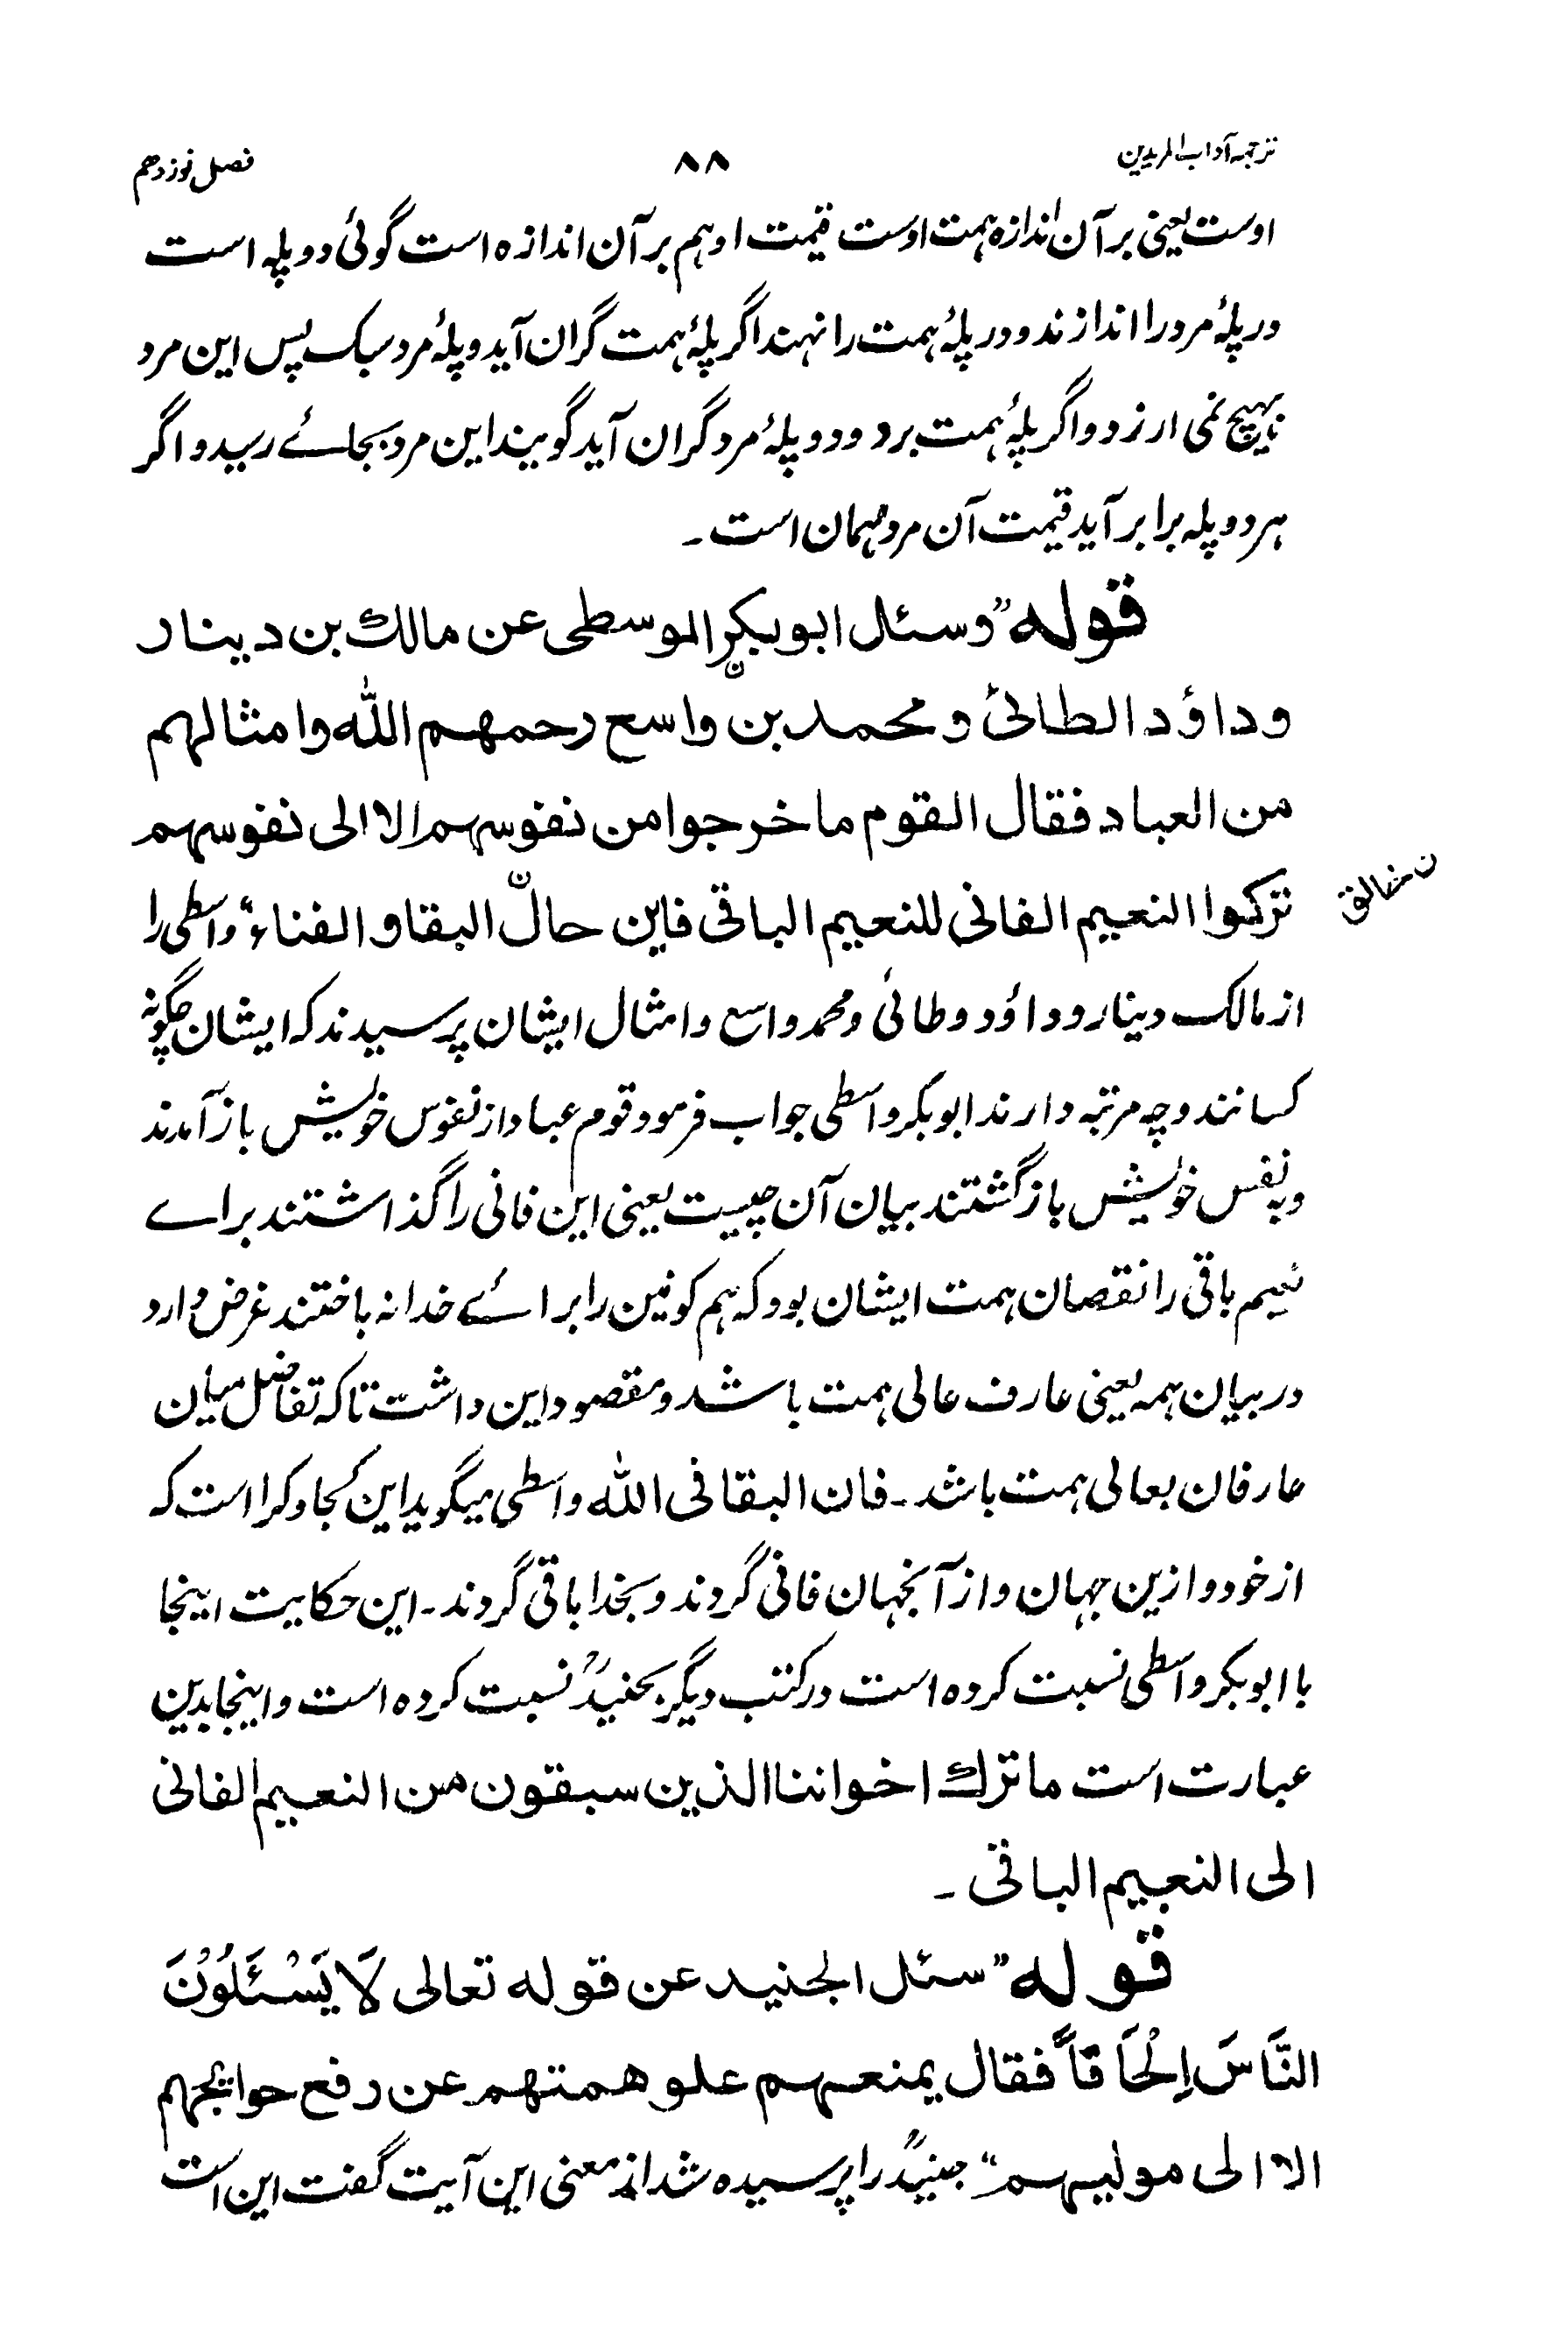 ترجمه آداب المریدین ۸۸ فصل نوزدهم
اوست یعنی بر آن اندازه همت اوست قیمت او هم بر آن اندازه است گوئی دو پله است
در پلۂ مرد را اندازند و در پلۂ همت را نهند اگر پلۂ همت گران آید و پلۂ مرد سبک پس این مرد
بهیچ نمی ارزد و اگر پلۂ همت برد و دو پلۂ مرد گران آید گویند این مرد بجائے رسید و اگر
هر دو پله برابر آید قیمت آن مرد همان است ـ
قوله ”وسئل ابوبکر الموسطی عن مالك بن دینار
وداؤد الطائی و محمد بن واسع رحمهم الله وامثالهم
من العباد فقال القوم ما خرجوا من نفوسهم الا الی نفوسهم
ن خالق
ترکوا النعیم الفانی للنعیم الباقی فاین حال البقا و الفناء“ واسطی را
از مالک دینار و داؤد و طائی و محمد واسع و امثال ایشان پرسیدند که ایشان چگونه
کسانند و چه مرتبه دارند ابوبکر واسطی جواب فرمود قوم عباد از نفوس خویش باز آمدند
و به نفس خویش باز گشتند بیان آن چیست یعنی این فانی را گذاشتند براے
نعیم باقی را نقصان همت ایشان بود که هم کونین را برائے خدا نه باختند غرض دارد
در بیان همه یعنی عارف عالی همت باشد و مقصود این داشت تا که تفاضل میان
عارفان بعالی همت باشد ـ فان البقا فی الله واسطی میگوید این کجا و کرا است که
از خود و ازین جهان و از آنجهان فانی گردند و بخدا باقی گردند ـ این حکایت اینجا
با ابوبکر واسطی نسبت کرده است در کتب دیگر بجنیدؒ نسبت کرده است و اینجا بدین
عبارت است ما ترك اخواننا الذین سبقون من النعیم الفانی
الی النعیم الباقی ـ
قوله ”سئل الجنید عن قوله تعالی لَا یَسْئَلُوْنَ
النَّاسَ اِلْحَاقَاً فقال یمنعهم علو همتهم عن رفع حوایجهم
الا الی مولیهم“ جنیدؒ را پرسیده شد از معنی این آیت گفت این است